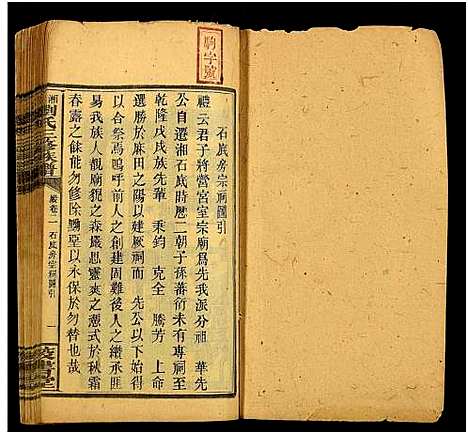 駒字號
石底房宗祠圖引
禮云君子將營宮室宗廟爲先我派分祖　華先
公自遷湘石底時歷二朝子孫蕃衍未有專祠至
乾隆戊戌族先輩　秉鈞　克全　騰芳　上命
選勝於麻田之陽以建厥祠而　先公以下始得
以合祭焉嗚呼前人之創建固難後人之繼承匪
易我族人入廟貌之森嚴思靈爽之憑式於秋霜
春露之餘能勿修除黝堊以永保於勿替也哉
湘　劉氏三修族譜
卷二　石底房宗祠圖引
一